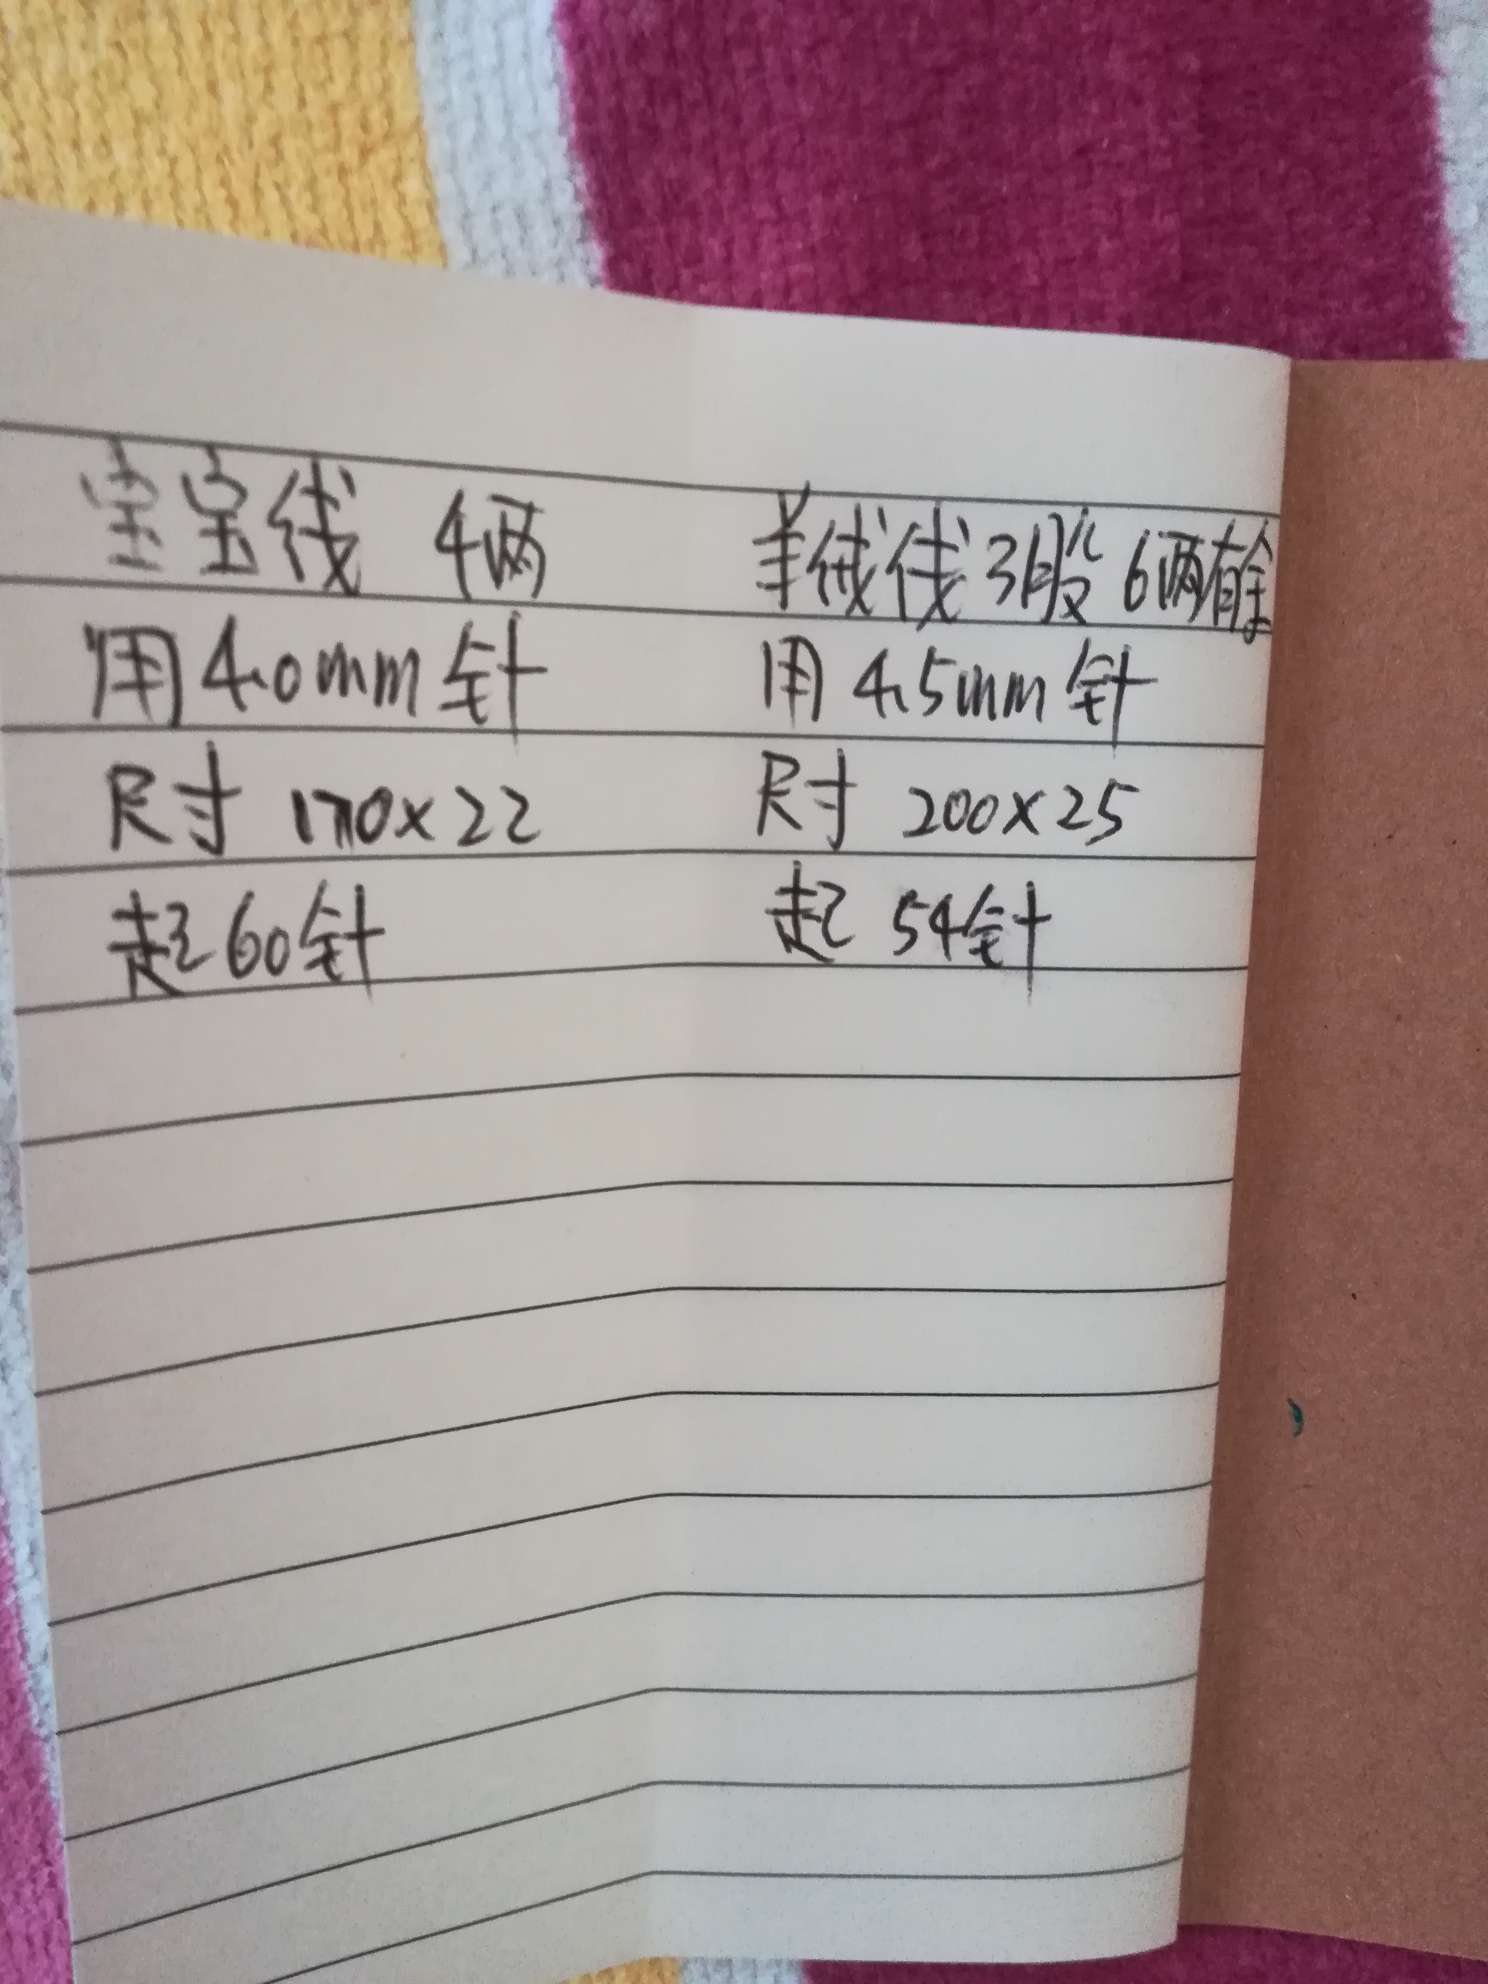 宝宝线 4两
用4.0mm针
尺寸 170x22
起60针
羊绒线3股 6两有余
用4.5mm针
尺寸 200x25
起 54针